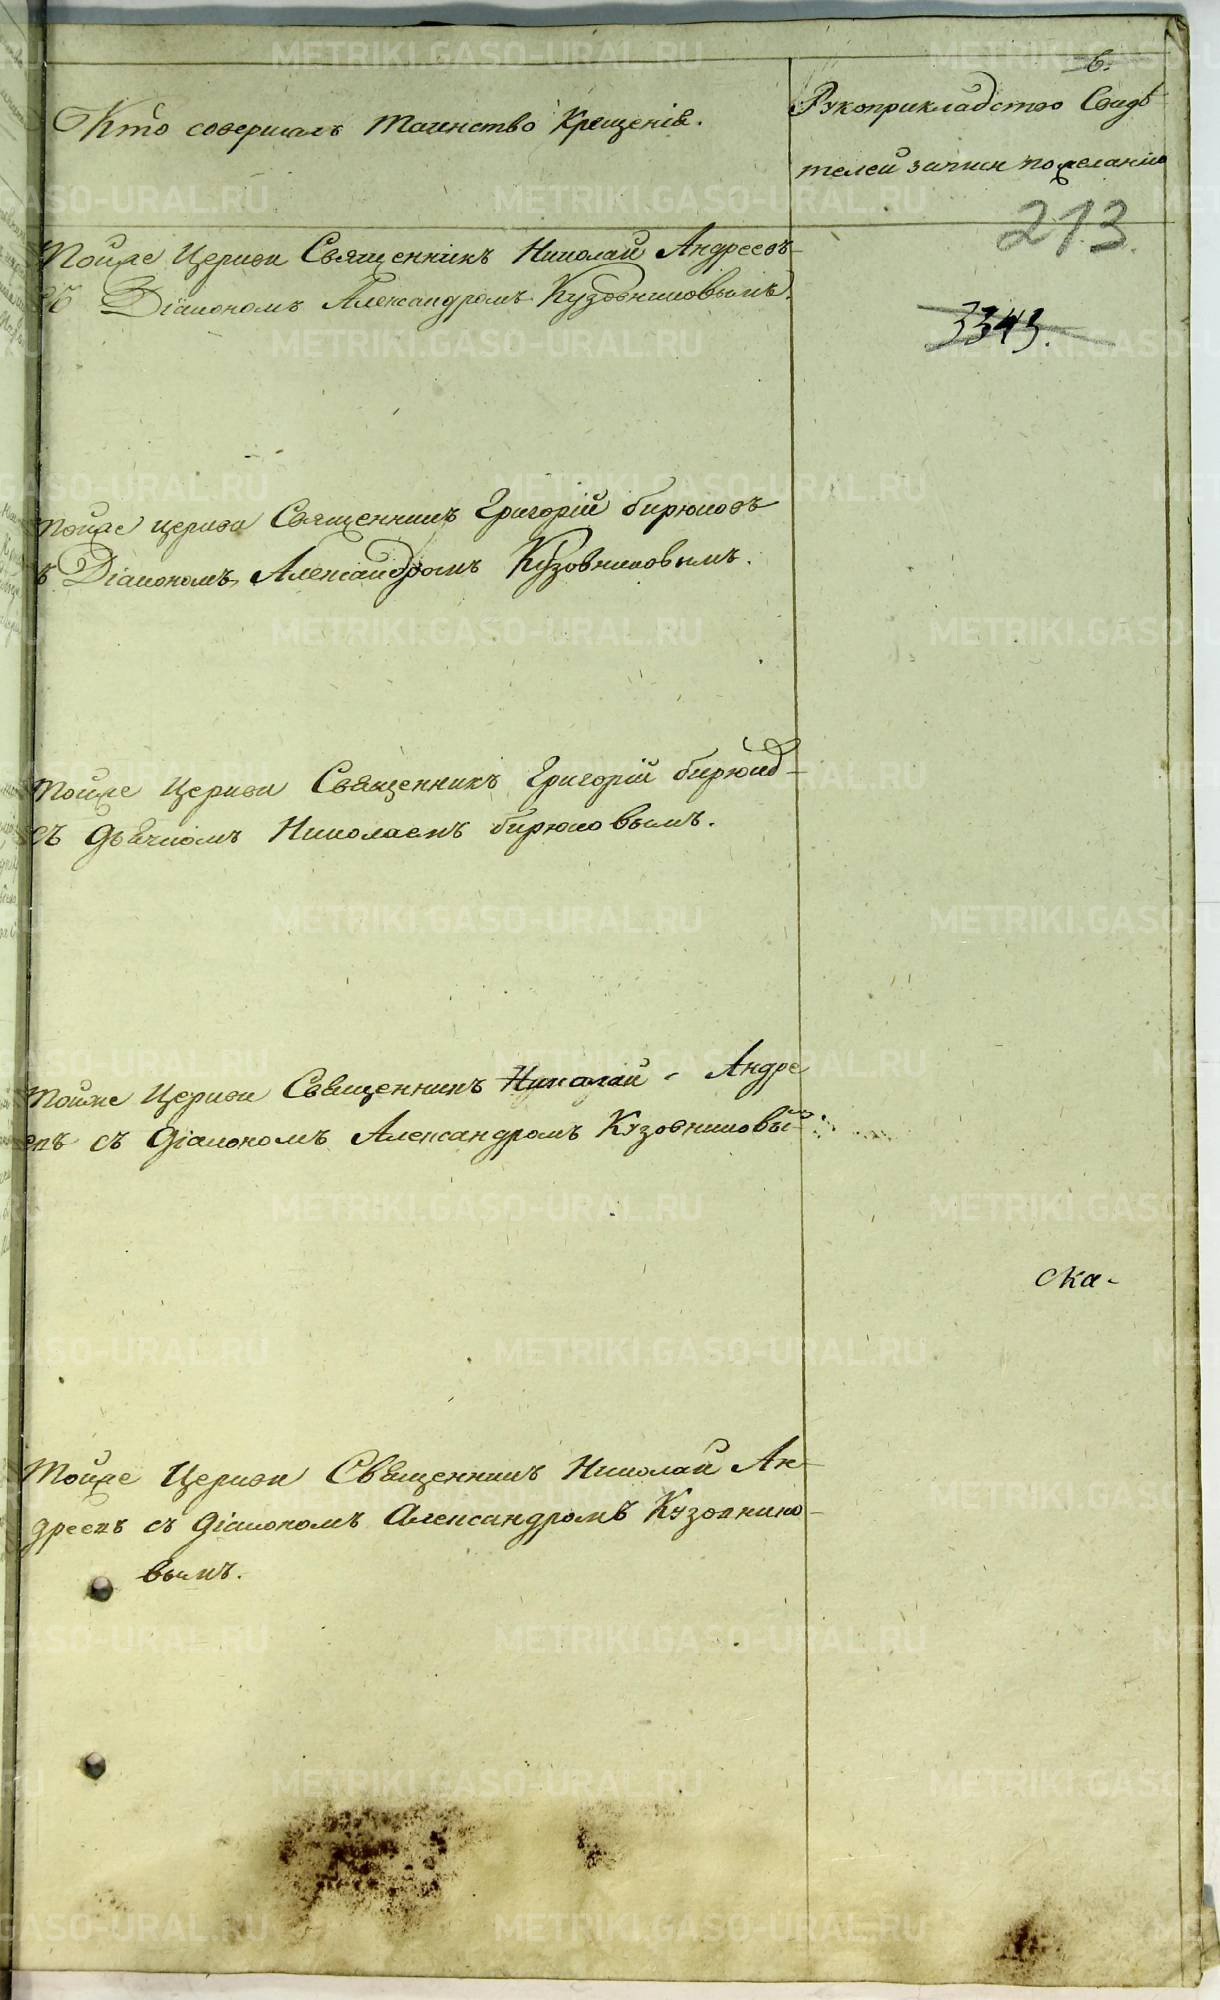 6.
Кто совершалъ таинство Крещенія.
Рукоприкладство Свидѣ
телей записи по желанію
213.
3343.
Тойже Церкви Священникъ Николай Андреевъ
съ Діакономъ Александромъ Кузовниковымъ.
Тойже церкви Священникъ Григорій бирюковъ
съ Діакономъ Александромъ Кузовниковымъ.
Тойже Церкви Священникъ Григорій бирюков
съ дьячкомъ Николаемъ бирюковымъ.
Тойже Церкви Священникъ Николай Андре
евъ съ діакономъ Александромъ Кузовниковым
ска-
Тойже Церкви Священникъ Николай Ан-
дреевъ съ діакономъ Александромъ Кузовнико-
вымъ.
METRIKI.GASO-URAL.RU